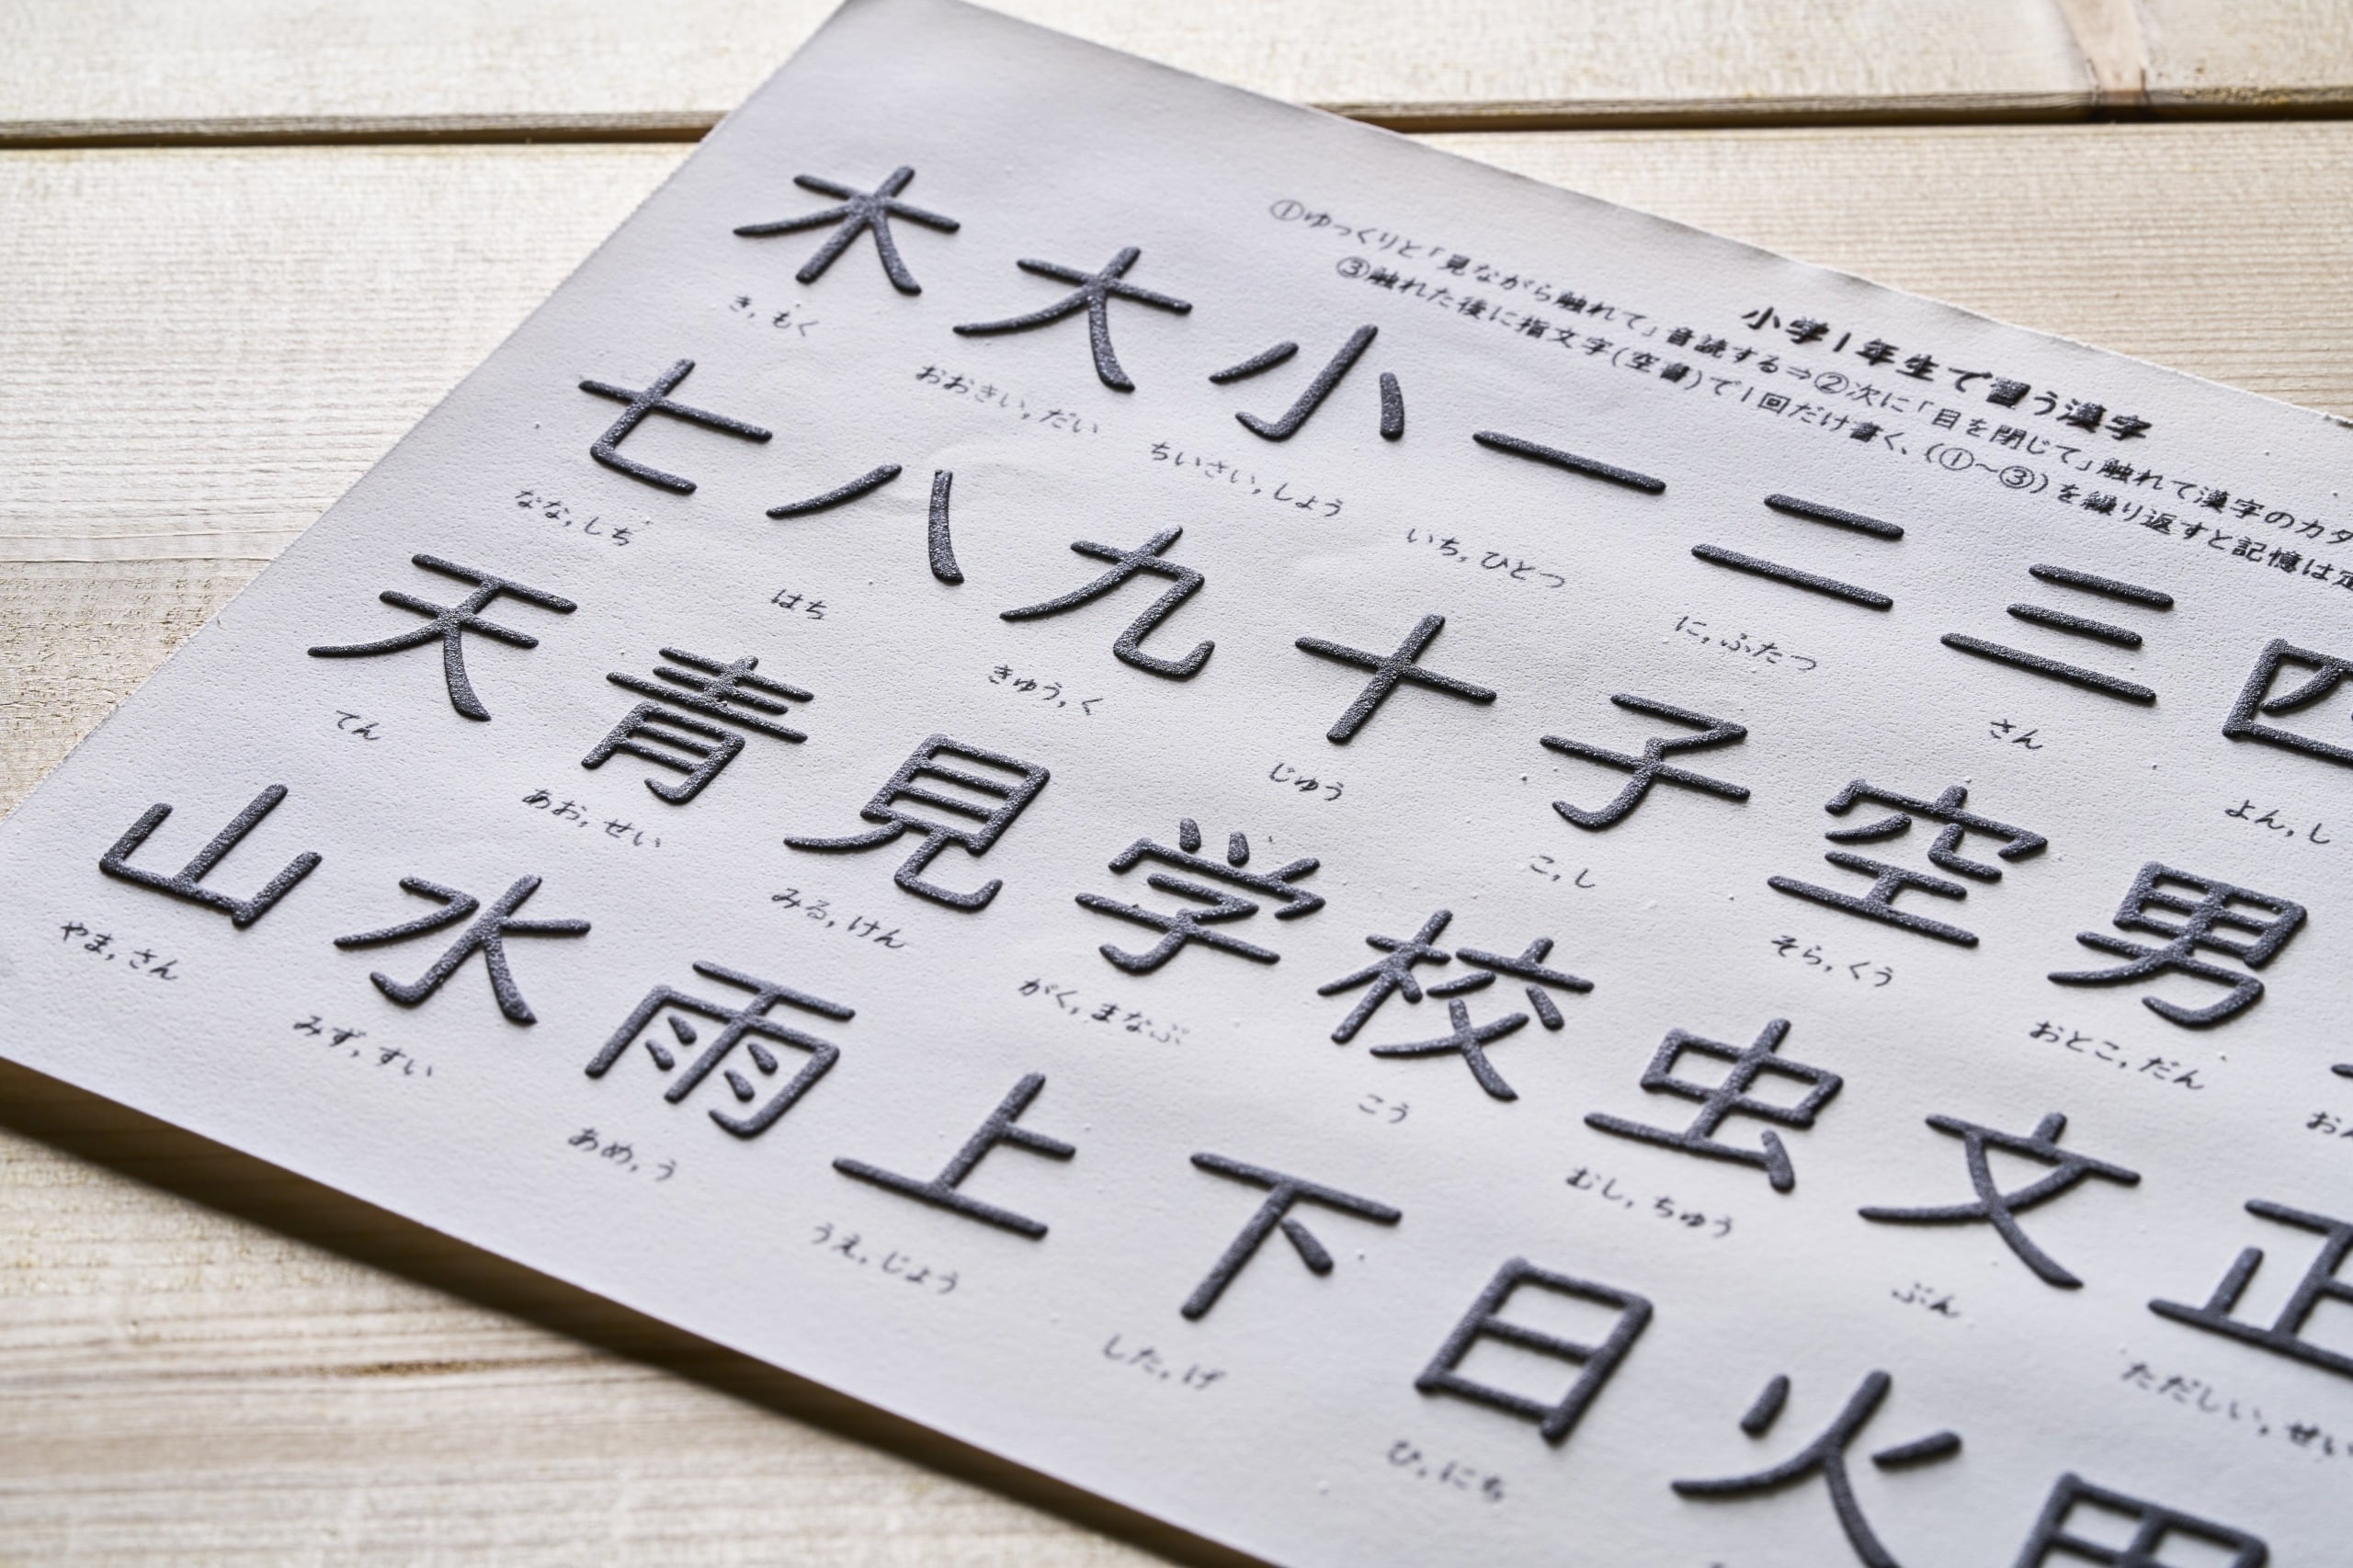 小学1年生で習う漢字
①ゆっくりと「見ながら触れて」音読する⇒②次に「目を閉じて」触れて漢字のカタ
③触れた後に指文字(空書)で1回だけ書く、(①~③)を繰り返すと記憶は定
木 大 小 一 二 三 四
き,もく おおきい,だい ちいさい,しょう いち,ひとつ に,ふたつ さん よん,し
七 八 九 十 子 空 男
なな,しち はち きゅう,く じゅう こ,し そら,くう おとこ,だん
天 青 見 学 校 虫 文 正
てん あお,せい みる,けん がく,まなぶ こう むし,ちゅう ぶん ただしい,せい
山 水 雨 上 下 日 火
やま,さん みず,すい あめ,う うえ,じょう した,げ ひ,にち